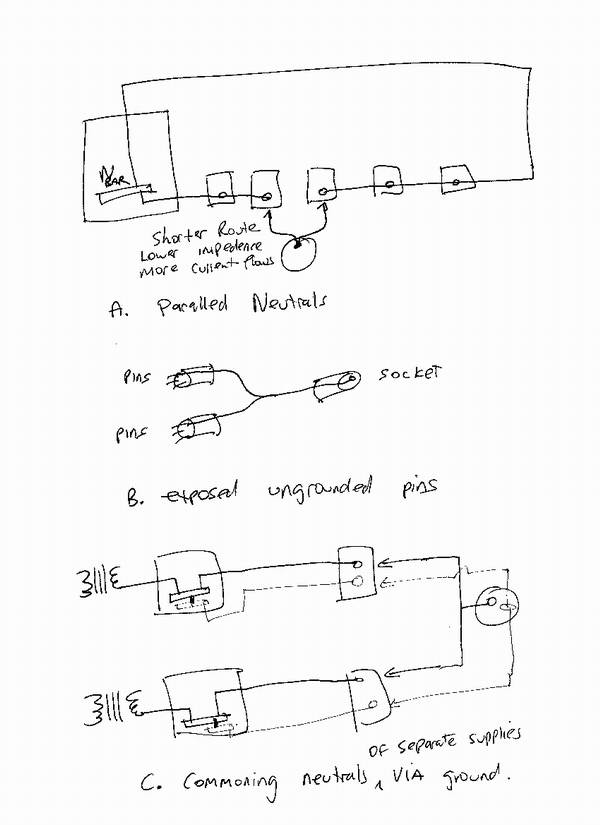 N
BAR
Shorter Route
Lower impedence
more current flows
A. Paralled Neutrals
pins
socket
pins
B. exposed ungrounded pins
OF separate supplies
C. Commoning neutrals ^ VIA ground.